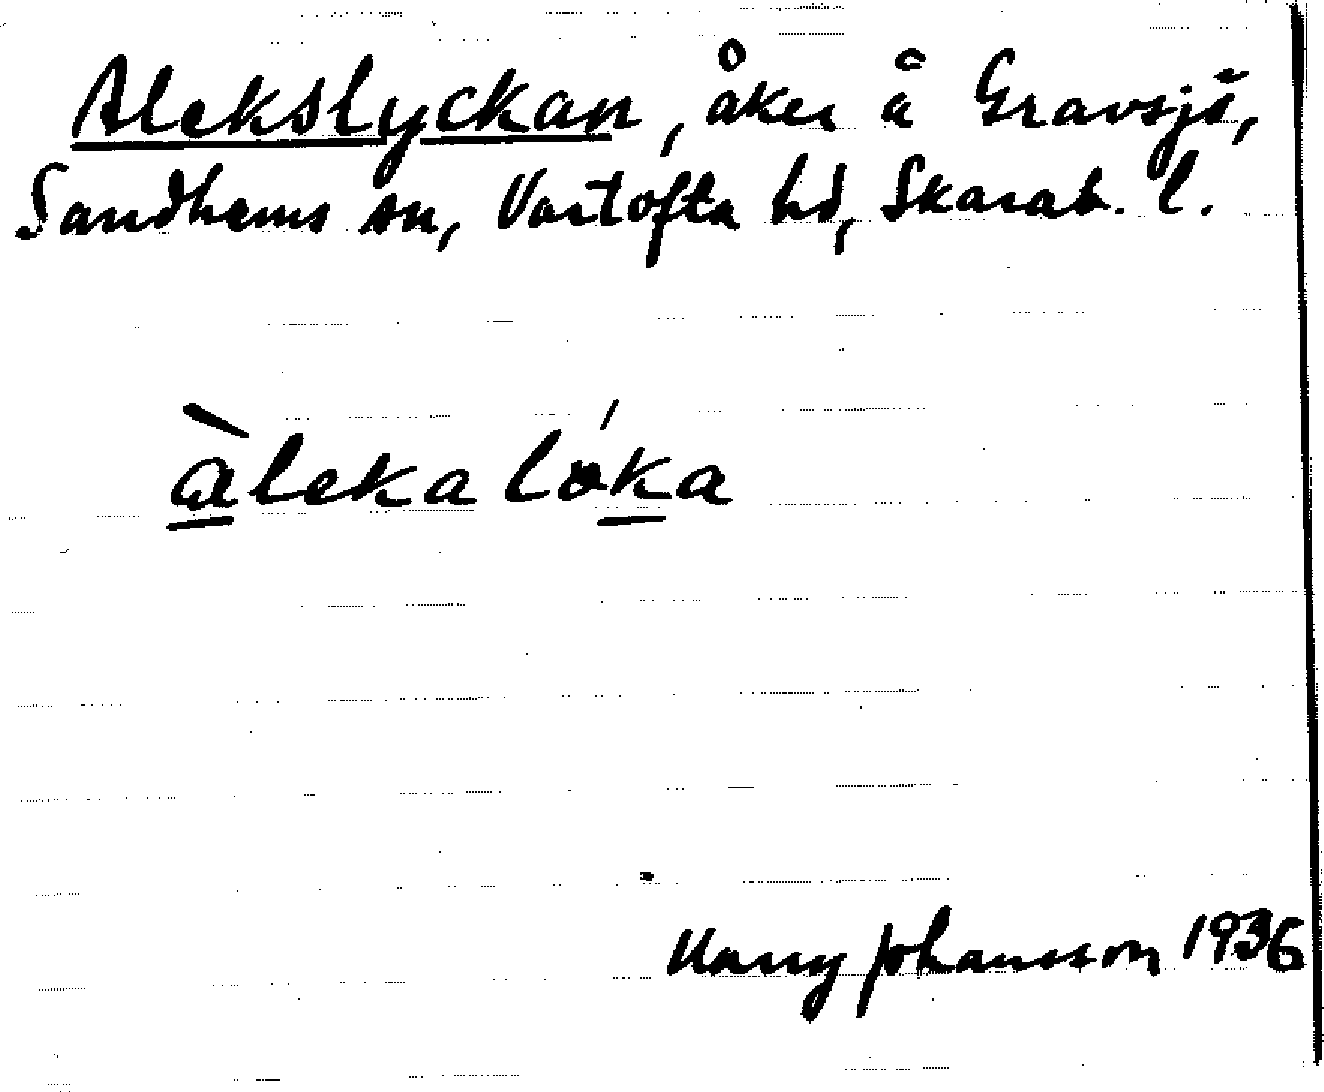 Alekslyckan, åker å Gravsjö,
Sandhems sn, Vartofta hd, Skarab. l.
àlekalóka
Harry Johansson 1936